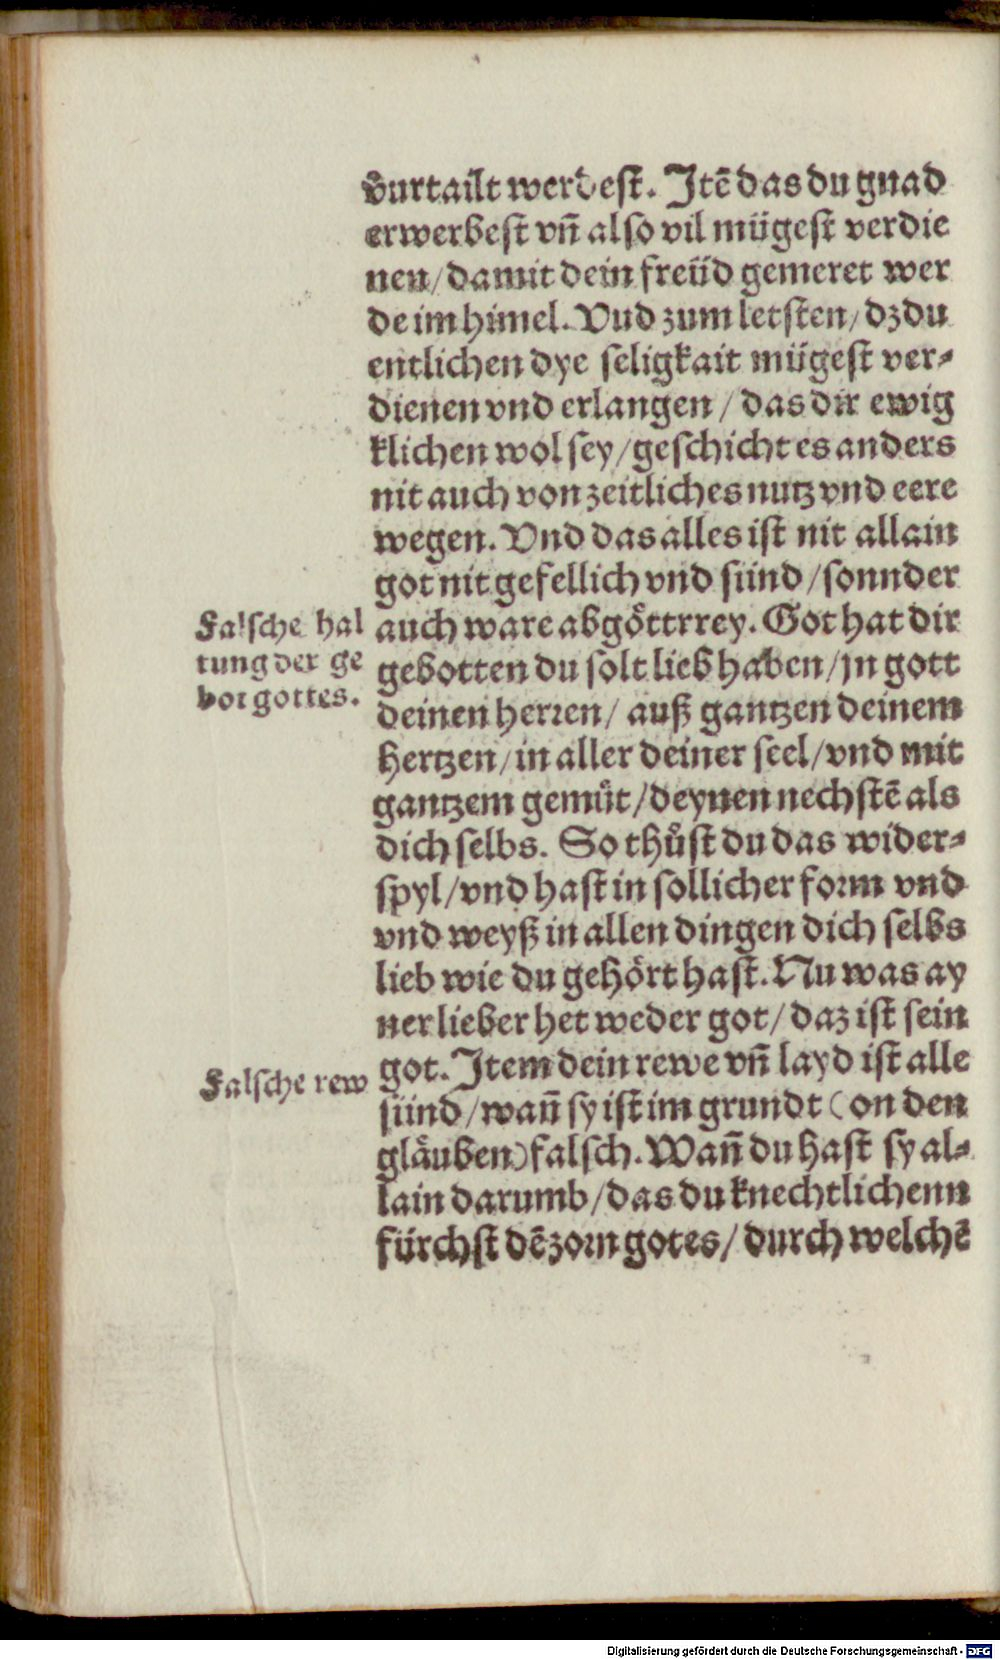 vͦurtailt werdest. Itē das du gnad
erwerbest vñ also vil mügest verdie
nen/damit dein freüd gemeret wer
de im himel. Vnd zum letsten/dz du
entlichen dye seligkait mügest ver⸗
dienen vnd erlangen/das dir ewig
klichen wol sey/geschicht es anders
nit auch von zeitliches nutz vnd eere
wegen. Vnd das alles ist nit allain
got nit gefellich vnd sünd/sonnder
Falsche hal
tung der ge
bot gottes.
auch ware abgöttrrey. Got hat dir
gebotten du solt lieb haben/jn gott
deinen herren/ auß gantzen deinem
hertzen/in aller deiner seel/vnd mit
gantzem gemüt/deynen nechstē als
dich selbs. So thůst du das wider⸗
spyl/vnd hast in sollicher form vnd
vnd weyß in allen dingen dich selbs
lieb wie du gehört hast. Nu was ay
ner lieber het weder got/ daz ist sein
Falsche rew
got. Item dein rewe vñ layd ist alle
sünd/wañ sy ist im grundt (on den
gläuben) falsch. Wañ du hast sy al⸗
lain darumb/das du knechtlichenn
fürchst dē zorn gotes/ durch welchē
Digitalisierung gefördert durch die Deutsche Forschungsgemeinschaft - DFG